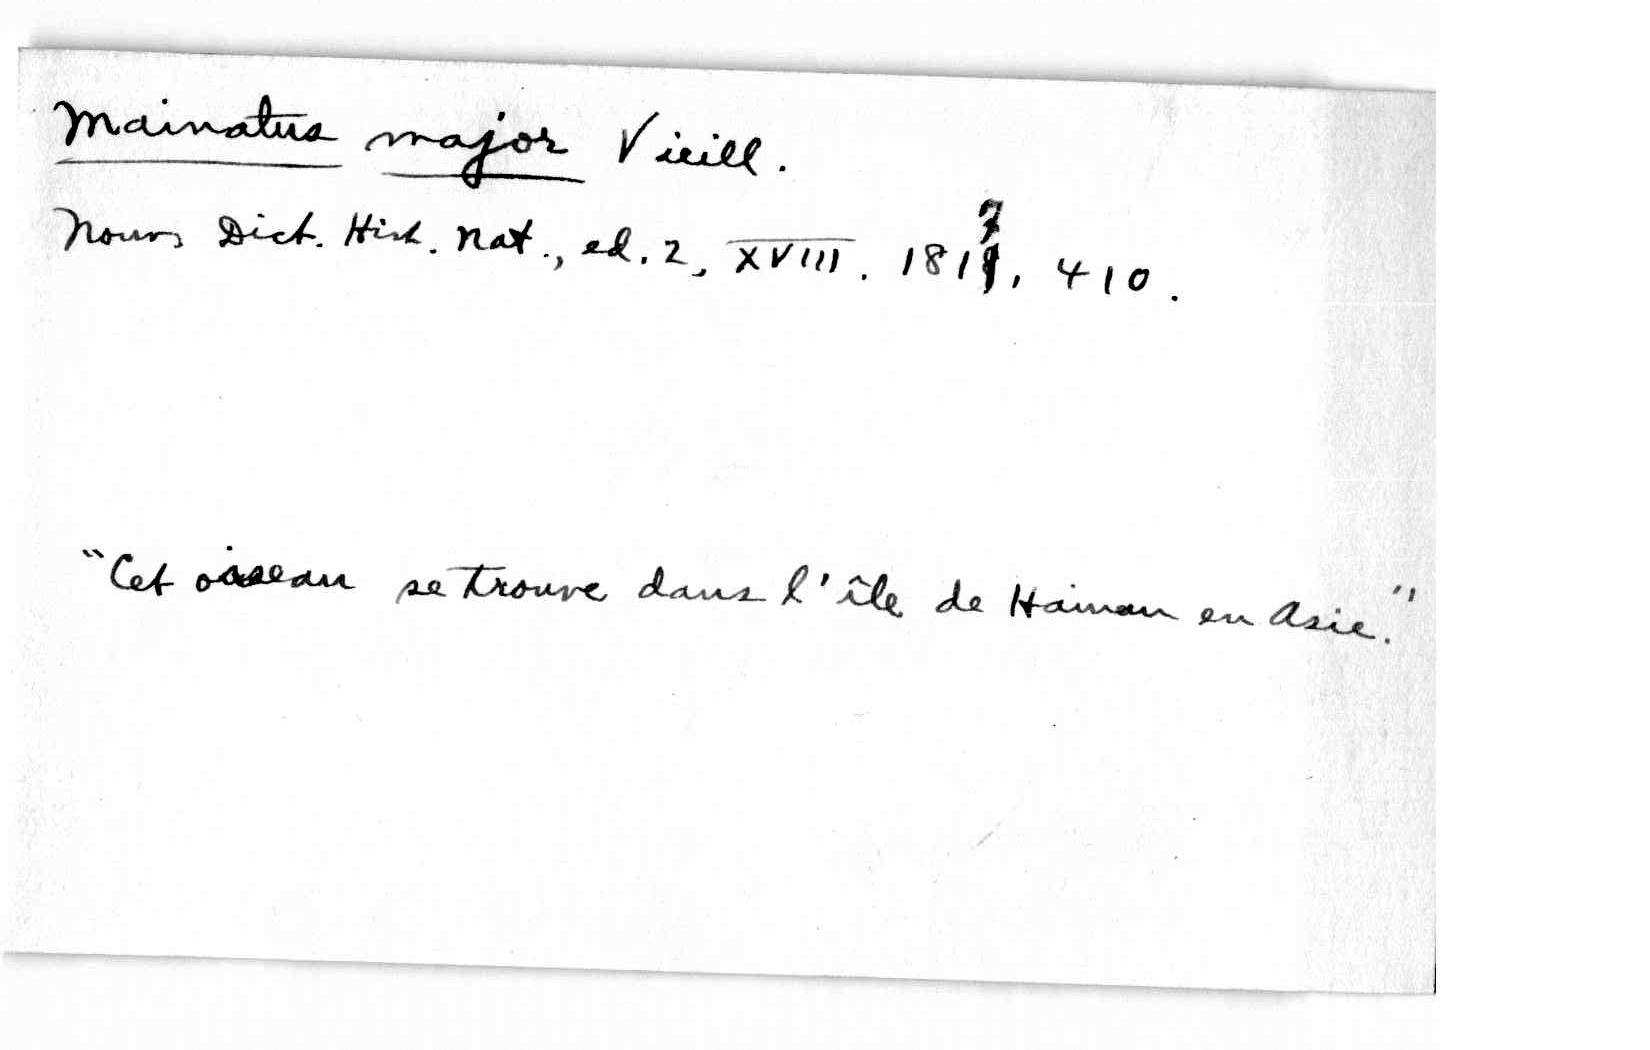 Mainatus major Vieill.
Nouv. Dict. Hist. Nat., ed. 2, XVIII. 1817, 410.
"Cet oiseau se trouve dans l'île de Hainan en Asie."